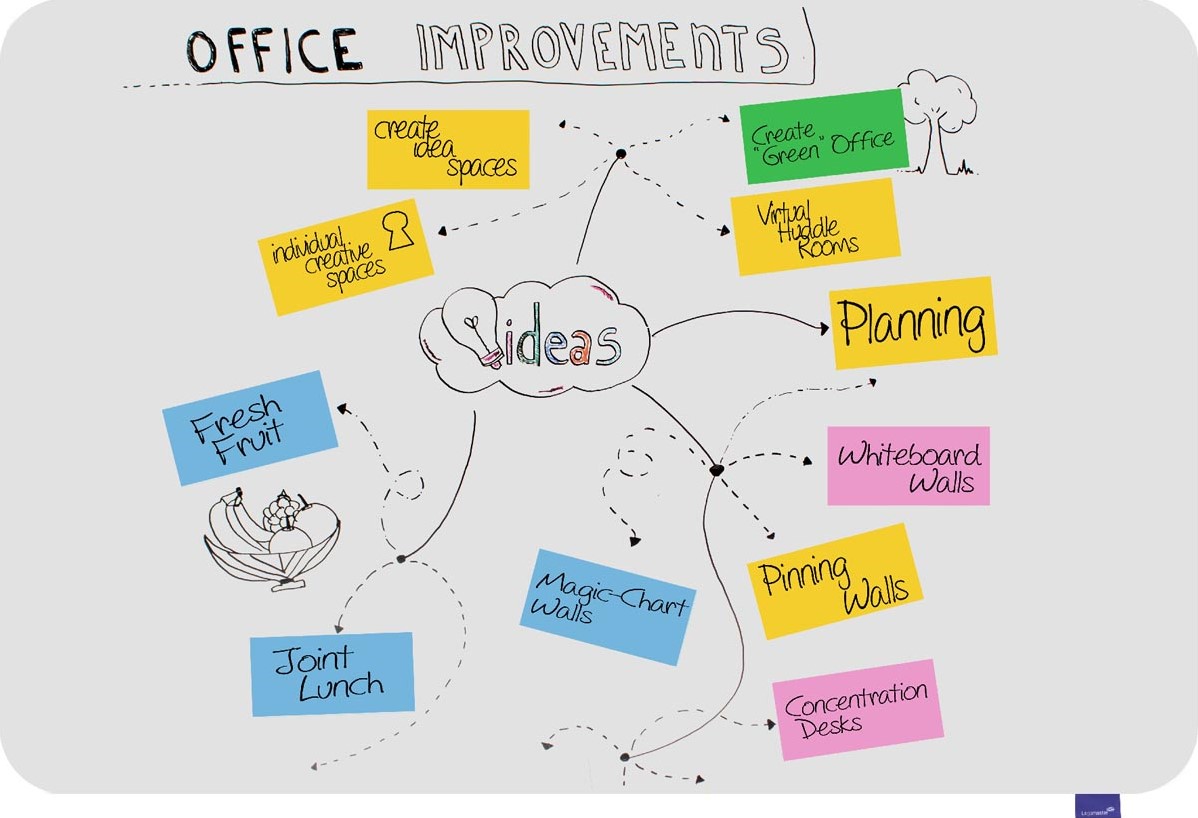 OFFICE IMPROVEMENTS
create
idea
spaces
Create
"Green" Office
individual
creative
spaces
Virtual
Huddle
Rooms
ideas
Planning
Fresh
Fruit
Whiteboard
Walls
Magic-Chart
Walls
Pinning
Walls
Joint
Lunch
Concentration
Desks
Legamaster